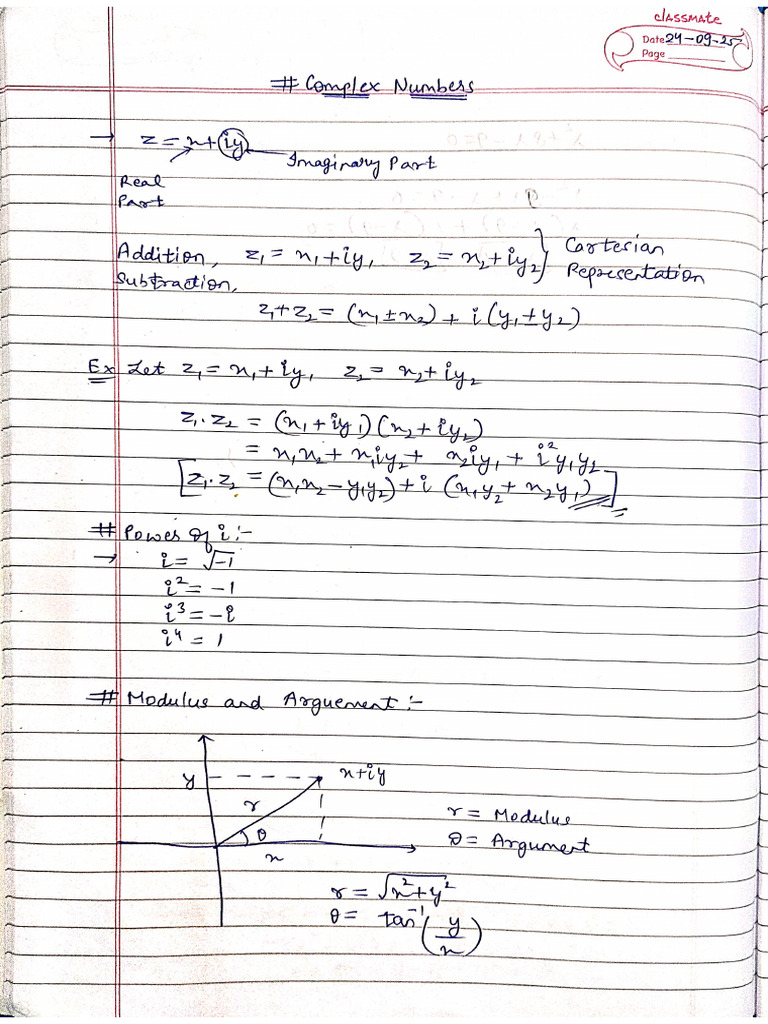 classmate
Date 24-09-25
Page
# Complex Numbers
→ z = x + iy
Imaginary Part
Real
Part
Addition, z₁ = x₁ + iy₁ z₂ = x₂ + iy₂ } Cartesian
Subtraction, Representation
z₁ + z₂ = (x₁ ± x₂) + i (y₁ ± y₂)
Ex Let z₁ = x₁ + iy₁ z₂ = x₂ + iy₂
z₁. z₂ = (x₁ + iy₁) (x₂ + iy₂)
= x₁x₂ + x₁iy₂ + x₂iy₁ + i² y₁y₂
[z₁. z₂ = (x₁x₂ - y₁y₂) + i (x₁y₂ + x₂y₁)]
# Power Of i :-
→ i = √-1
i² = -1
i³ = -i
i⁴ = 1
# Modulus and Arguement :-
y x+iy
r
θ
x
r = Modulus
θ = Argument
r = √x² + y²
θ = tan⁻¹ (y/x)